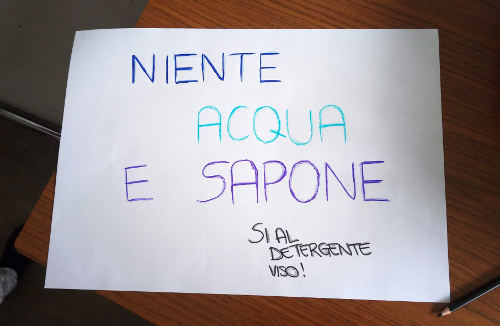 NIENTE
ACQUA
E SAPONE
SI AL
DETERGENTE
VISO!